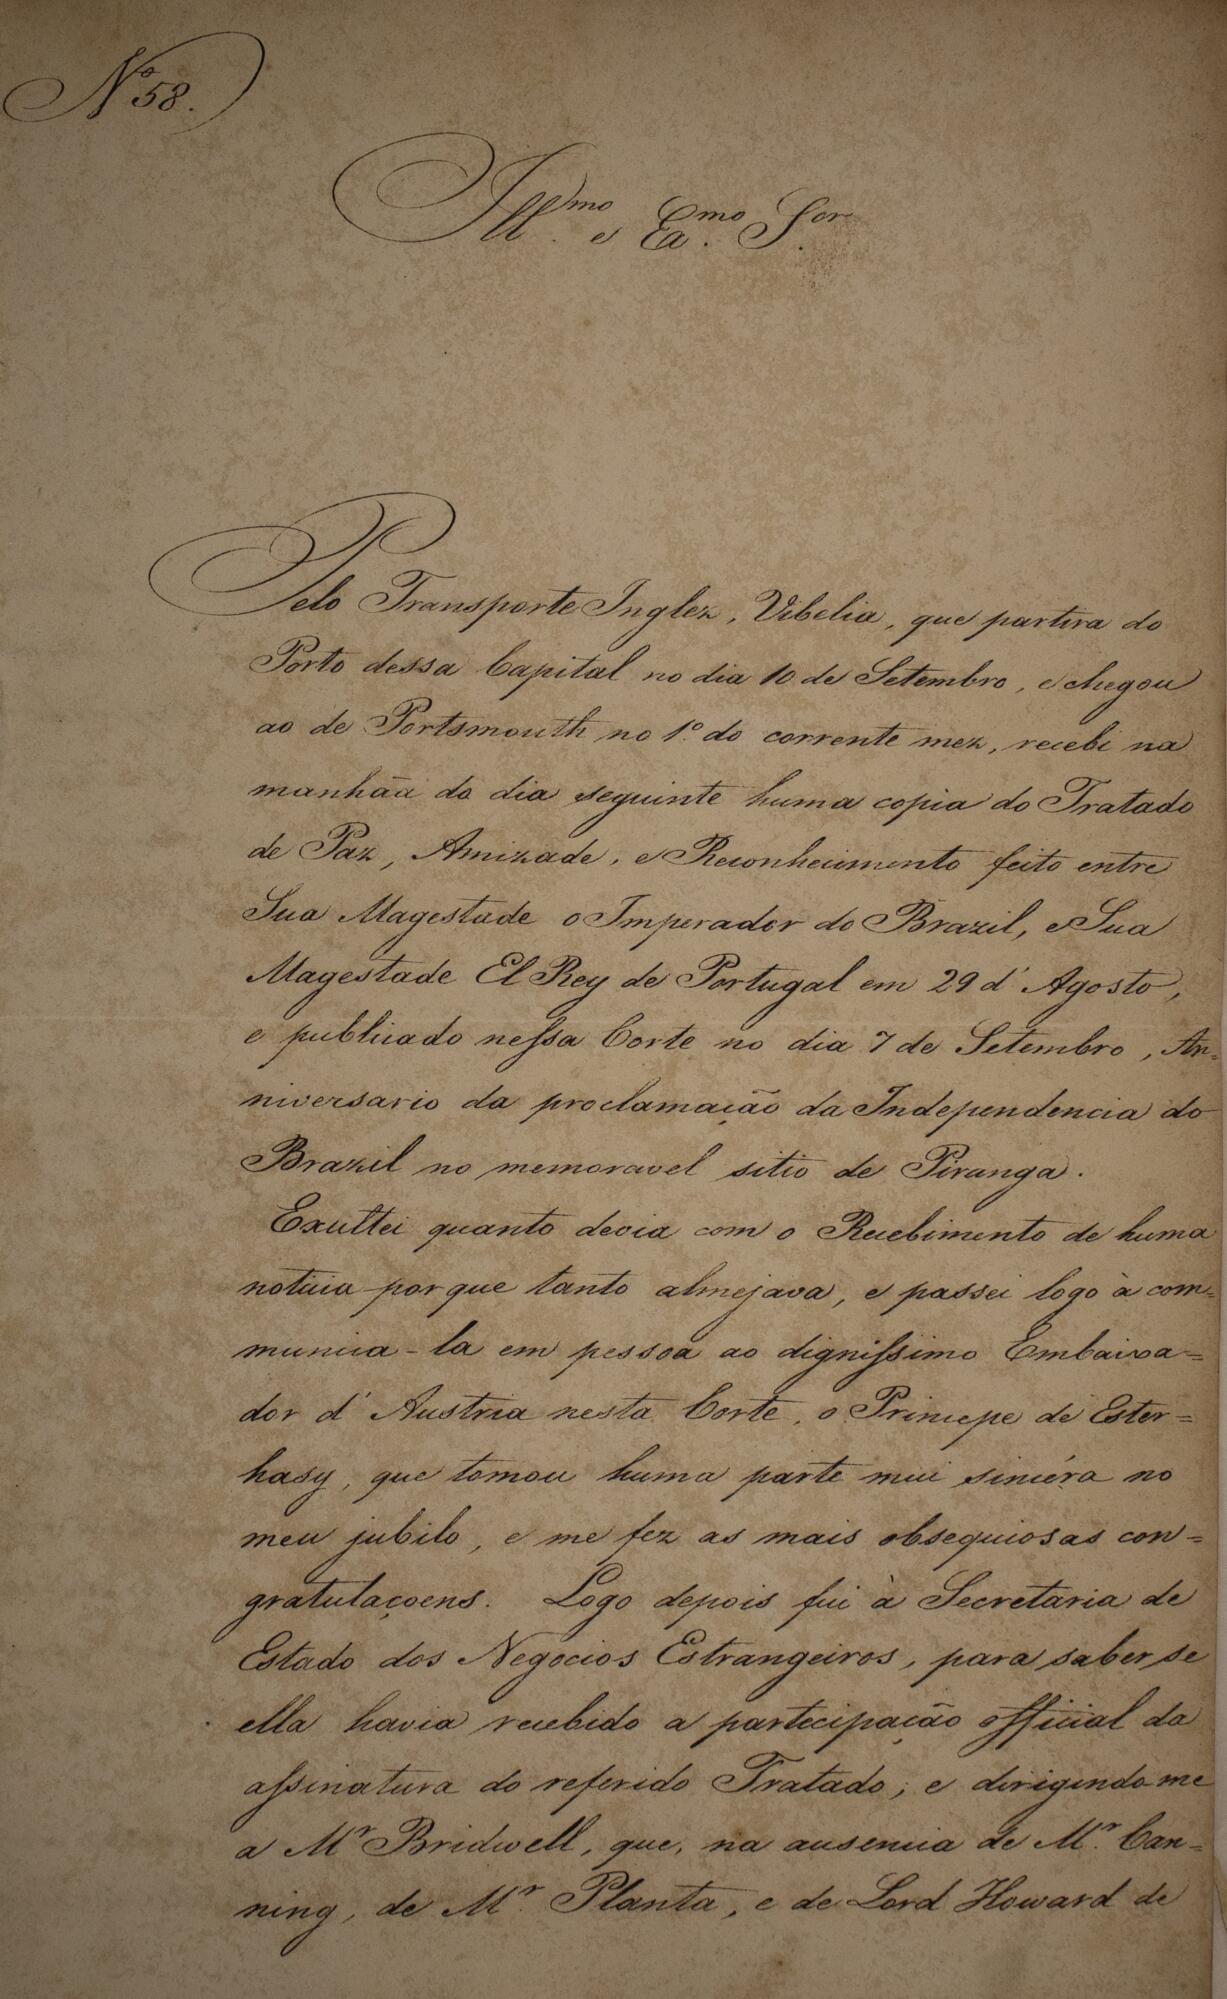 Nº 58.
Illmo. e Exmo. Sor.
Pelo Transporte Inglez, Vibelia, que partira do
Porto dessa Capital no dia 10 de Setembro, e chegou
ao de Portsmouth no 1º do corrente mez, recebi na
manhãa do dia seguinte huma copia do Tratado
de Paz, Amizade, e Reconhecimento feito entre
Sua Magestade o Imperador do Brazil, e Sua
Magestade El Rey de Portugal em 29 d' Agosto,
e publicado nessa Corte no dia 7 de Setembro, An-
niversario da proclamação da Independencia do
Brazil no memoravel sitio de Piranga.
Exultei quanto devia com o Recebimento de huma
noticia porque tanto almejava, e passei logo à com=
munica-la em pessoa ao dignissimo Embaixa=
dor d' Austria nesta Corte, o Principe de Ester=
hasy, que tomou huma parte mui sincéra no
meu jubilo, e me fez as mais obsequiosas con=
gratulaçoens. Logo depois fui à Secretaria de
Estado dos Negocios Estrangeiros, para saber se
ella havia recebido a partecipação official da
assinatura do referido Tratado; e dirigindo me
a Mr Bridwell, que, na ausencia de Mr. Can=
ning, de Mr. Planta, e de Lord Howard de